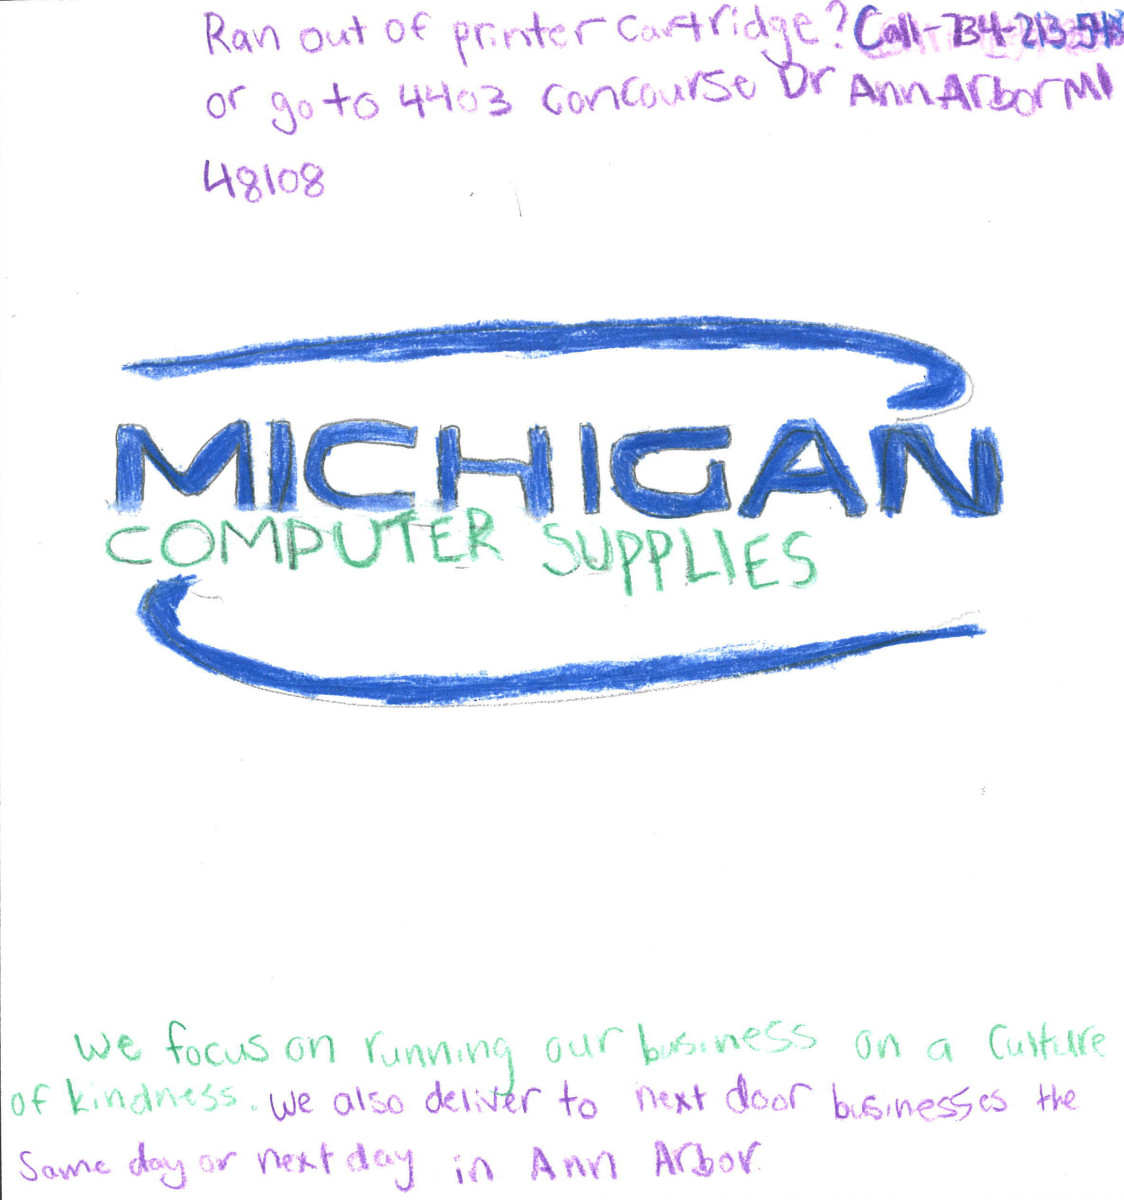 Ran out of printer cartridge? Call-734-213-
or go to 4403 Concourse Dr Ann Arbor MI
48108
MICHIGAN
COMPUTER SUPPLIES
We focus on running our business on a Culture
of kindness. We also deliver to next door businesses the
Same day or next day in Ann Arbor.